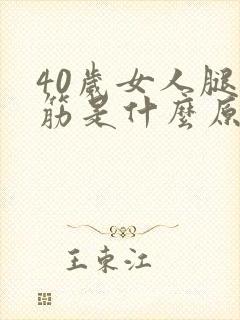 40歲女人腿
筋是什麼原
王東江